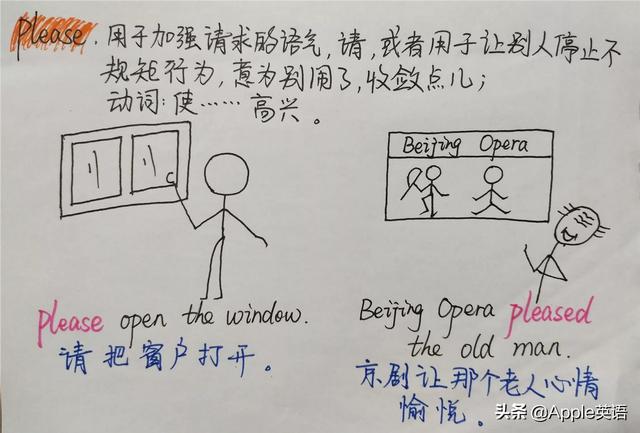 please. 用于加强请求的语气，请，或者用于让别人停止不
规矩行为，意为别闹了，收敛点儿；
动词：使……高兴。
Beijing Opera
please open the window.
请把窗户打开。
Beijing Opera pleased
the old man.
京剧让那个老人心情
愉悦。
头条 @Apple英语